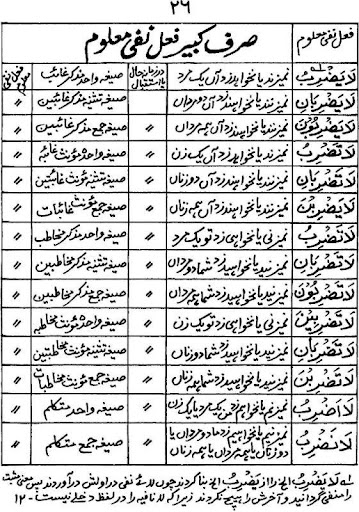 ۲۶
فعل نفی معلوم صرف کبیر فعل نفی معلوم
لَا يَضْرِبُ نمیزند یا نخواہد زد آں یک مرد در زمانہ حال یا استقبال صیغہ واحد مذکر غائب فعل نفی معلوم
لَا يَضْرِبَانِ نمیزنند یا نخواہند زد آں دو مرداں 〃 صیغہ تثنیہ مذکر غائبین 〃
لَا يَضْرِبُوْنَ نمیزنند یا نخواہند زد آں ہمہ مرداں 〃 صیغہ جمع مذکر غائبین 〃
لَا تَضْرِبُ نمیزند یا نخواہد زد آں یک زن 〃 صیغہ واحد مؤنث غائبہ 〃
لَا تَضْرِبَانِ نمیزنند یا نخواہند زد آں دو زناں 〃 صیغہ تثنیہ مؤنث غائبتین 〃
لَا يَضْرِبْنَ نمیزنند یا نخواہند زد آں ہمہ زناں 〃 صیغہ جمع مؤنث غائبات 〃
لَا تَضْرِبُ نمیزنی یا نخواہی زد تو یک مرد 〃 صیغہ واحد مذکر مخاطب 〃
لَا تَضْرِبَانِ نمیزنید یا نخواہید زد شما دو مرداں 〃 صیغہ تثنیہ مذکر مخاطبین 〃
لَا تَضْرِبُوْنَ نمیزنید یا نخواہید زد شما ہمہ مرداں 〃 صیغہ جمع مذکر مخاطبین 〃
لَا تَضْرِبِيْنَ نمیزنی یا نخواہی زد تو یک زن 〃 صیغہ واحد مؤنث مخاطبہ 〃
لَا تَضْرِبَانِ نمیزنید یا نخواہید زد شما دو زناں 〃 صیغہ تثنیہ مؤنث مخاطبتین 〃
لَا تَضْرِبْنَ نمیزنید یا نخواہید زد شما ہمہ زناں 〃 صیغہ جمع مؤنث مخاطبات 〃
لَا اَضْرِبُ نمیزنم یا نخواہم زد من یک مرد یا یک زن 〃 صیغہ واحد متکلم 〃
لَا نَضْرِبُ نمیزنیم یا نخواہیم زد ما دو مرداں یا دو زناں یا ہمہ مرداں یا ہمہ زناں 〃 صیغہ جمع متکلم 〃
لہ لَا يَضْرِبُ الخ را از يَضْرِبُ الخ بنا کردند چوں لائے نفی در اولش در آوردند پس معنی مثبت
را منفی گردانید و آخرش را ہیچ نکردند زیرا کہ لا نافیہ را در لفظ دخلے نیست ۔ ۱۲